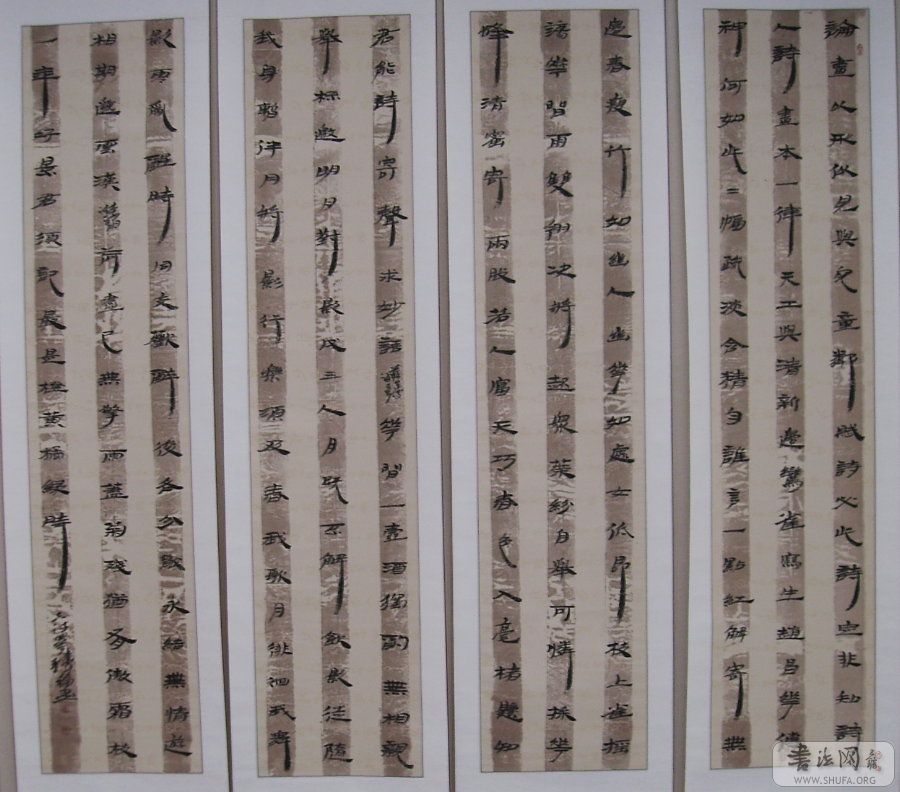 論畫以形似見與兒童鄰賦詩必此詩定非知詩
人詩畫本一律天工與清新邊鸞雀寫生趙昌華傳
神何如此二幅疏淡含精勻誰言一點紅解寄無
邊春瘦竹如幽人幽華如處女低昂枝上雀搖
蕩華間雨雙翎決將起眾葉紛自舉可憐採華
蜂清蜜寄兩股若人富天巧春色入毫楮懸知
君能詩寄聲求妙語華間一壺酒獨酌無相親
舉杯邀明月對影成三人月既不解飲影徒隨
我身暫伴月將影行樂須及春我歌月徘徊我舞
影零亂醒時同交歡醉後各分散永結無情遊
相期邈雲漢荷盡已無擎雨蓋菊殘猶有傲霜枝
一年好景君須記最是橙黃橘綠時
书法网
WWW.SHUFA.ORG